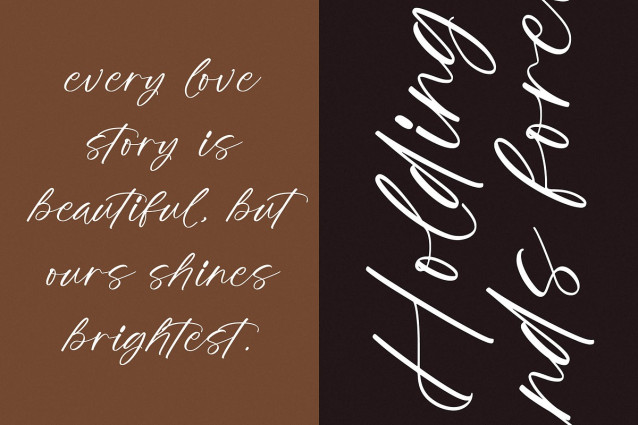 every love
story is
beautiful, but
ours shines
brightest.
Holding